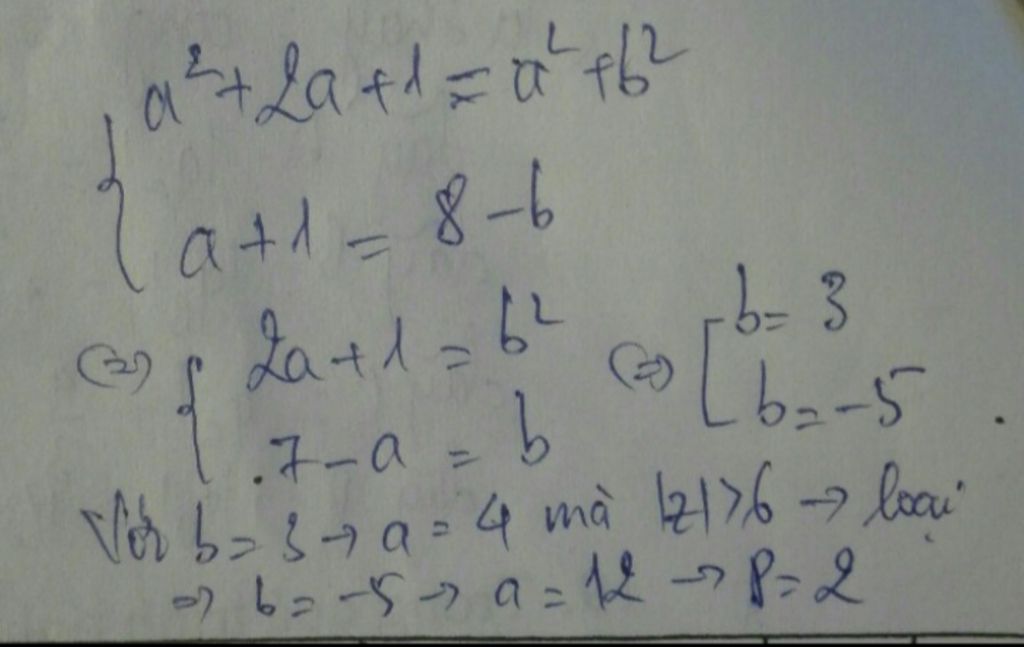 { a² + 2a + 1 = a² + b²
a + 1 = 8 - b
(=) { 2a + 1 = b² (=) [ b = 3
7 - a = b b = -5 .
Với b = 3 → a = 4 mà |z| > 6 → loại
=> b = -5 → a = 12 → P = 2